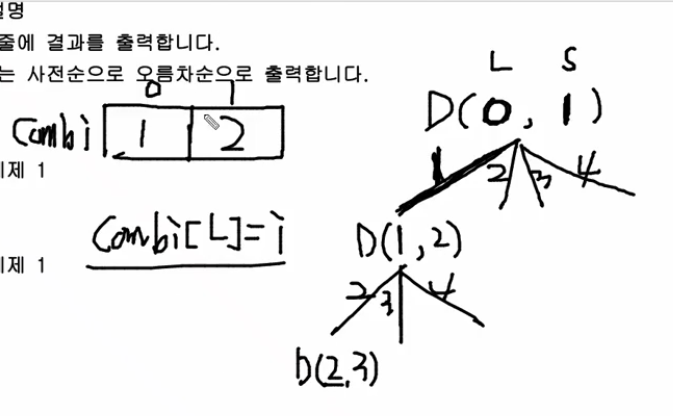 설명
줄에 결과를 출력합니다.
는 사전순으로 오름차순으로 출력합니다.
0 1
Combi 1 2
제 1
Combi[L]=i
제 1
L S
D(0, 1)
1 2 3 4
D(1,2)
2 3 4
D(2,3)